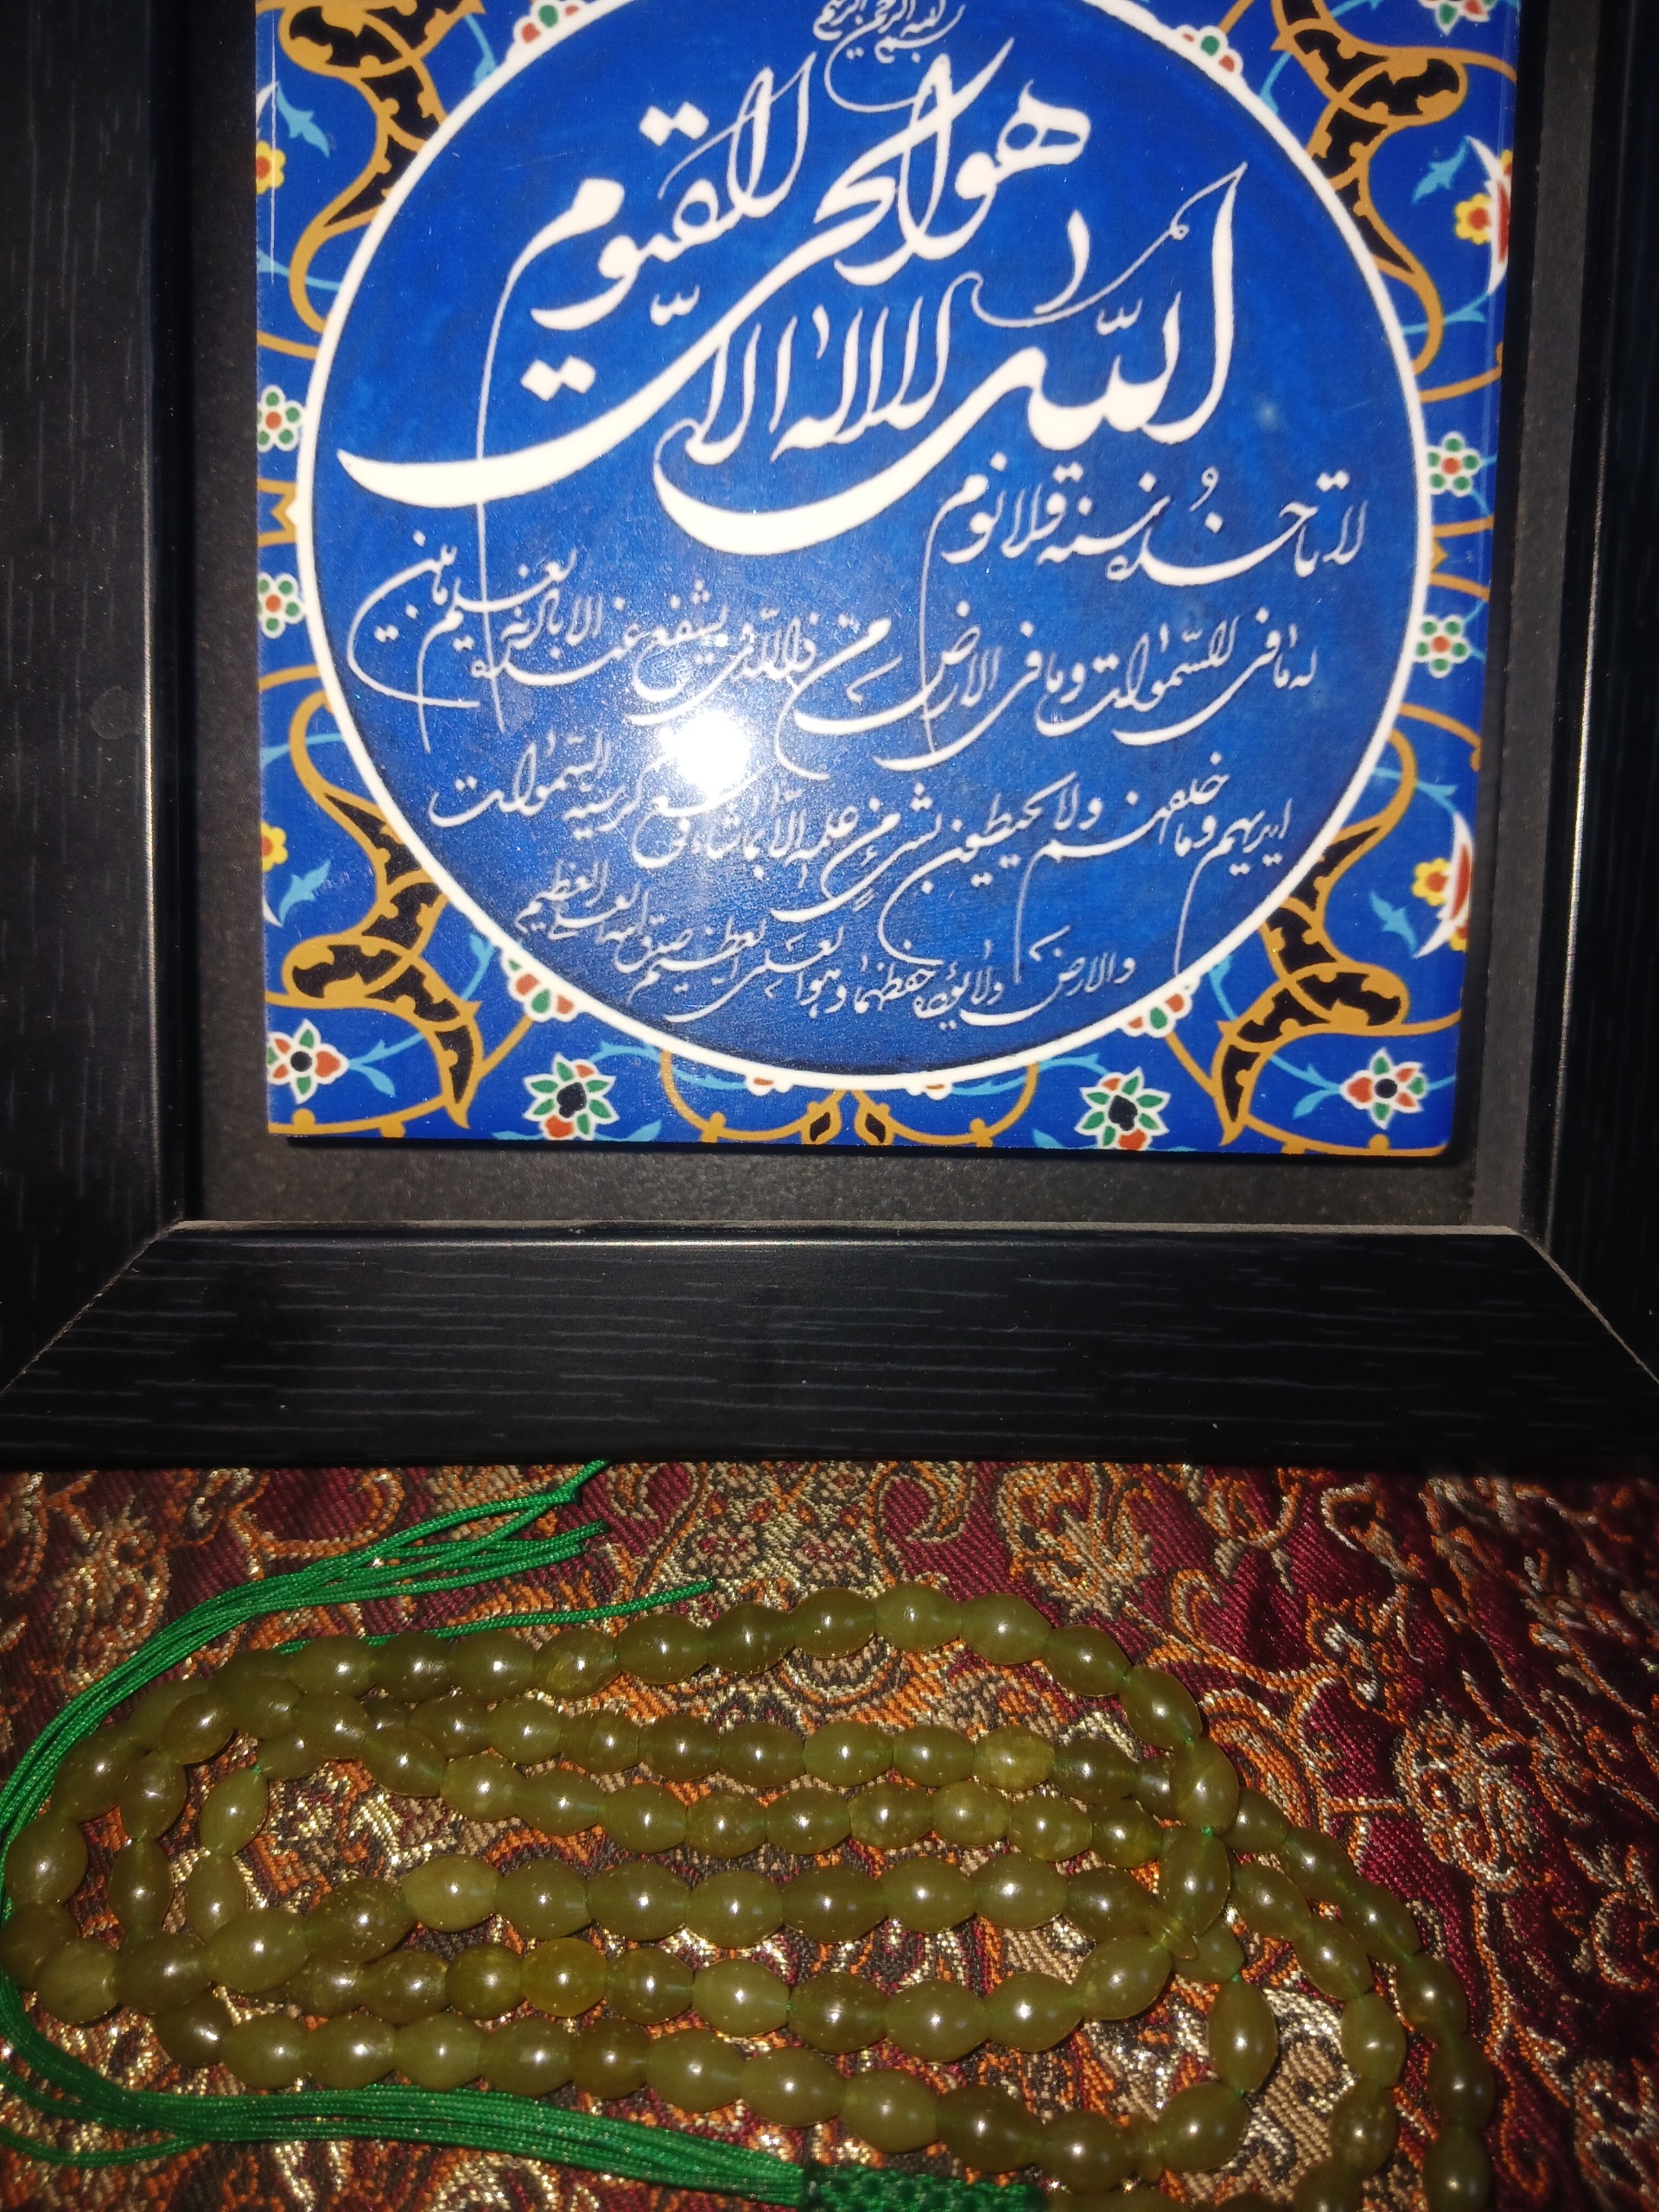 بسم الله الرحمن الرحیم
الله لا اله الا هو الحی القیوم
لا تاخذه سنة ولا نوم
له ما فی السموات وما فی الارض من ذالذی یشفع عنده الا باذنه یعلم ما بین
ایدیهم وما خلفهم ولا یحیطون بشیء من علمه الا بما شاء وسع کرسیه السموات
والارض ولا یؤده حفظهما وهو العلی العظیم صدق الله العلی العظیم